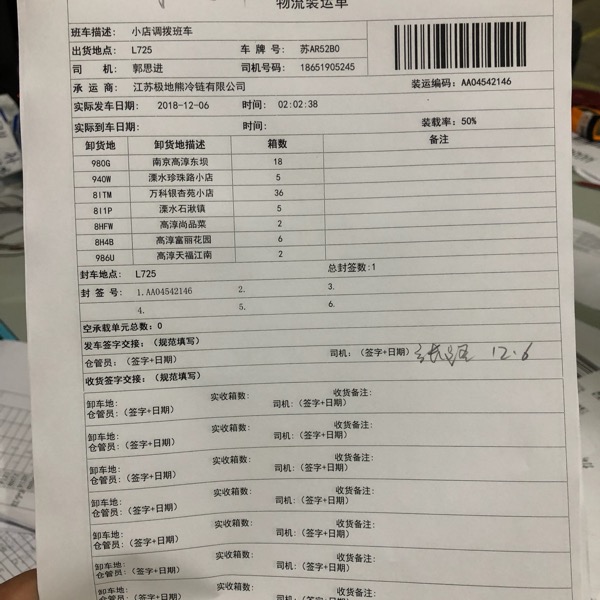 物流装运单
班车描述: 小店调拨班车
出货地点: L725 车 牌 号: 苏AR52B0
司 机: 郭思进 司机号码: 18651905245
承 运 商: 江苏极地熊冷链有限公司 装运编码: AA04542146
实际发车日期: 2018-12-06 时间: 02:02:38
实际到车日期: 时间: 装载率: 50%
卸货地 卸货地描述 箱数 备注
980G 南京高淳东坝 18
940W 溧水珍珠路小店 5
8ITM 万科银杏苑小店 36
8I1P 溧水石湫镇 5
8HFW 高淳尚品菜 2
8H4B 高淳富丽花园 6
986U 高淳天福江南 2
封车地点: L725 总封签数:1
封 签 号: 1.AA04542146 2. 3.
4. 5. 6.
空承载单元总数: 0
发车签字交接: (规范填写)
仓管员: (签字+日期) 司机: (签字+日期) 12.6
收货签字交接: (规范填写)
卸车地: 实收箱数: 收货备注:
仓管员: (签字+日期) 司机: (签字+日期)
卸车地: 实收箱数: 收货备注:
仓管员: (签字+日期) 司机: (签字+日期)
卸车地: 实收箱数: 收货备注:
仓管员: (签字+日期) 司机: (签字+日期)
卸车地: 实收箱数: 收货备注:
仓管员: (签字+日期) 司机: (签字+日期)
卸车地: 实收箱数: 收货备注:
仓管员: (签字+日期) 司机: (签字+日期)
卸车地: 实收箱数: 收货备注:
仓管员: (签字+日期) 司机: (签字+日期)
卸车地: 实收箱数: 收货备注: